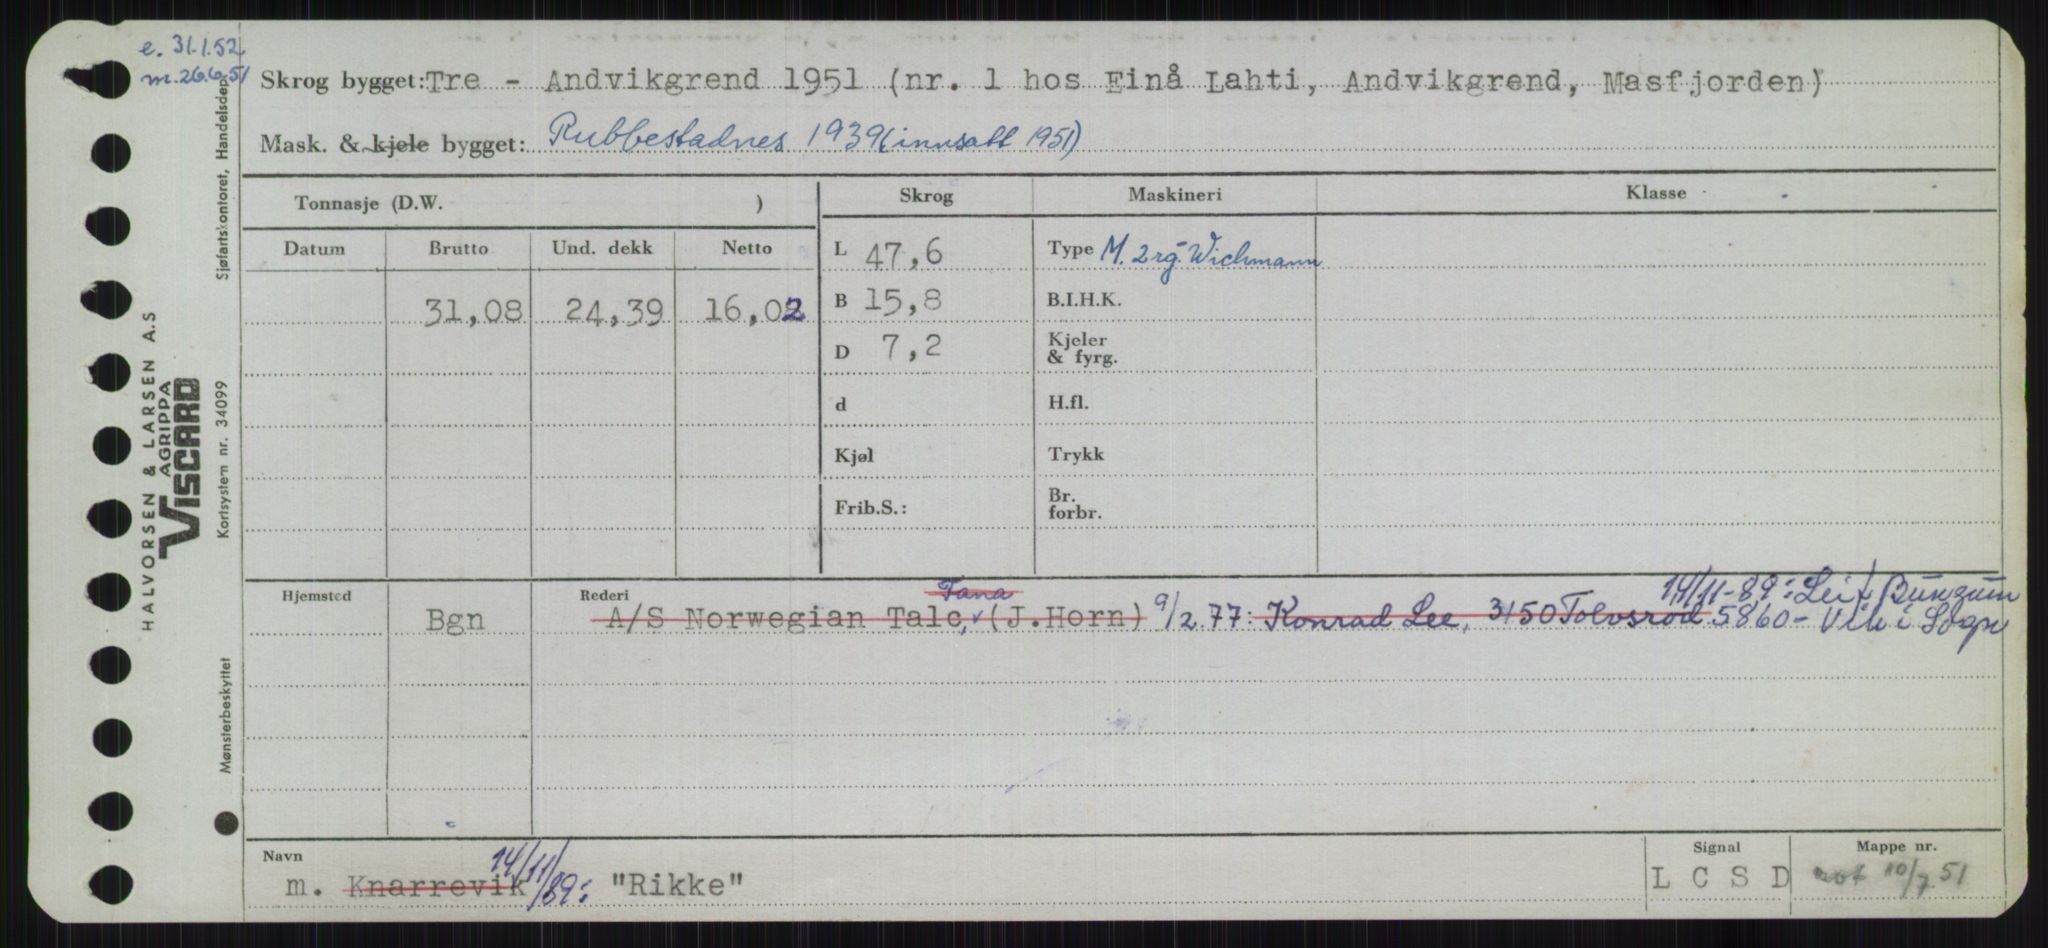 e. 31.1.52
m. 26.6.51
Skrog bygget: Tre - Andvikgrend 1951 (nr. 1 hos Einå Lahti, Andvikgrend, Masfjorden)
Mask. & kjele bygget: Rubbestadnes 1939 (innsatt 1951)
Tonnasje (D.W. )
Skrog
Maskineri
Klasse
Datum Brutto Und. dekk Netto
31,08 24,39 16,02
L 47,6
B 15,8
D 7,2
d
Kjøl
Frib.S.:
Type M. 2 syl. Wichmann
B.I.H.K.
Kjeler
& fyrg.
H.fl.
Trykk
Br.
forbr.
Hjemsted
Bgn
Rederi
Fana
A/S Norwegian Talc, (J.Horn) 9/2 77: Konrad Lee, 3150 Tolvsrød
14/11-89: Leif
5860 - Vik i Sogn
Navn
m. Knarrevik 14/11/89: "Rikke"
Signal
L C S D
Mappe nr.
not 10/7.51
HALVORSEN & LARSEN A.S
AGRIPPA
VISCARD
Sjøfartskontoret, Handelsdep.
Kortsystem nr. 34099
Mønsterbeskyttet